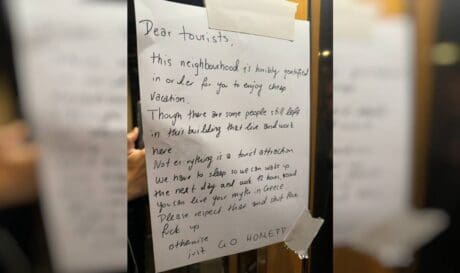 Dear tourists,
this neighbourhood is horribly gentrified
in order for you to enjoy cheap
vacation.
Though there are some people still left
in this building that live and work
here
Not everything is a tourist attraction
We have to sleep so we can wake up
the next day and work 12 hours, so
you can live your myth in Greece
Please respect that and shut the
fuck up
otherwise
just GO HOME